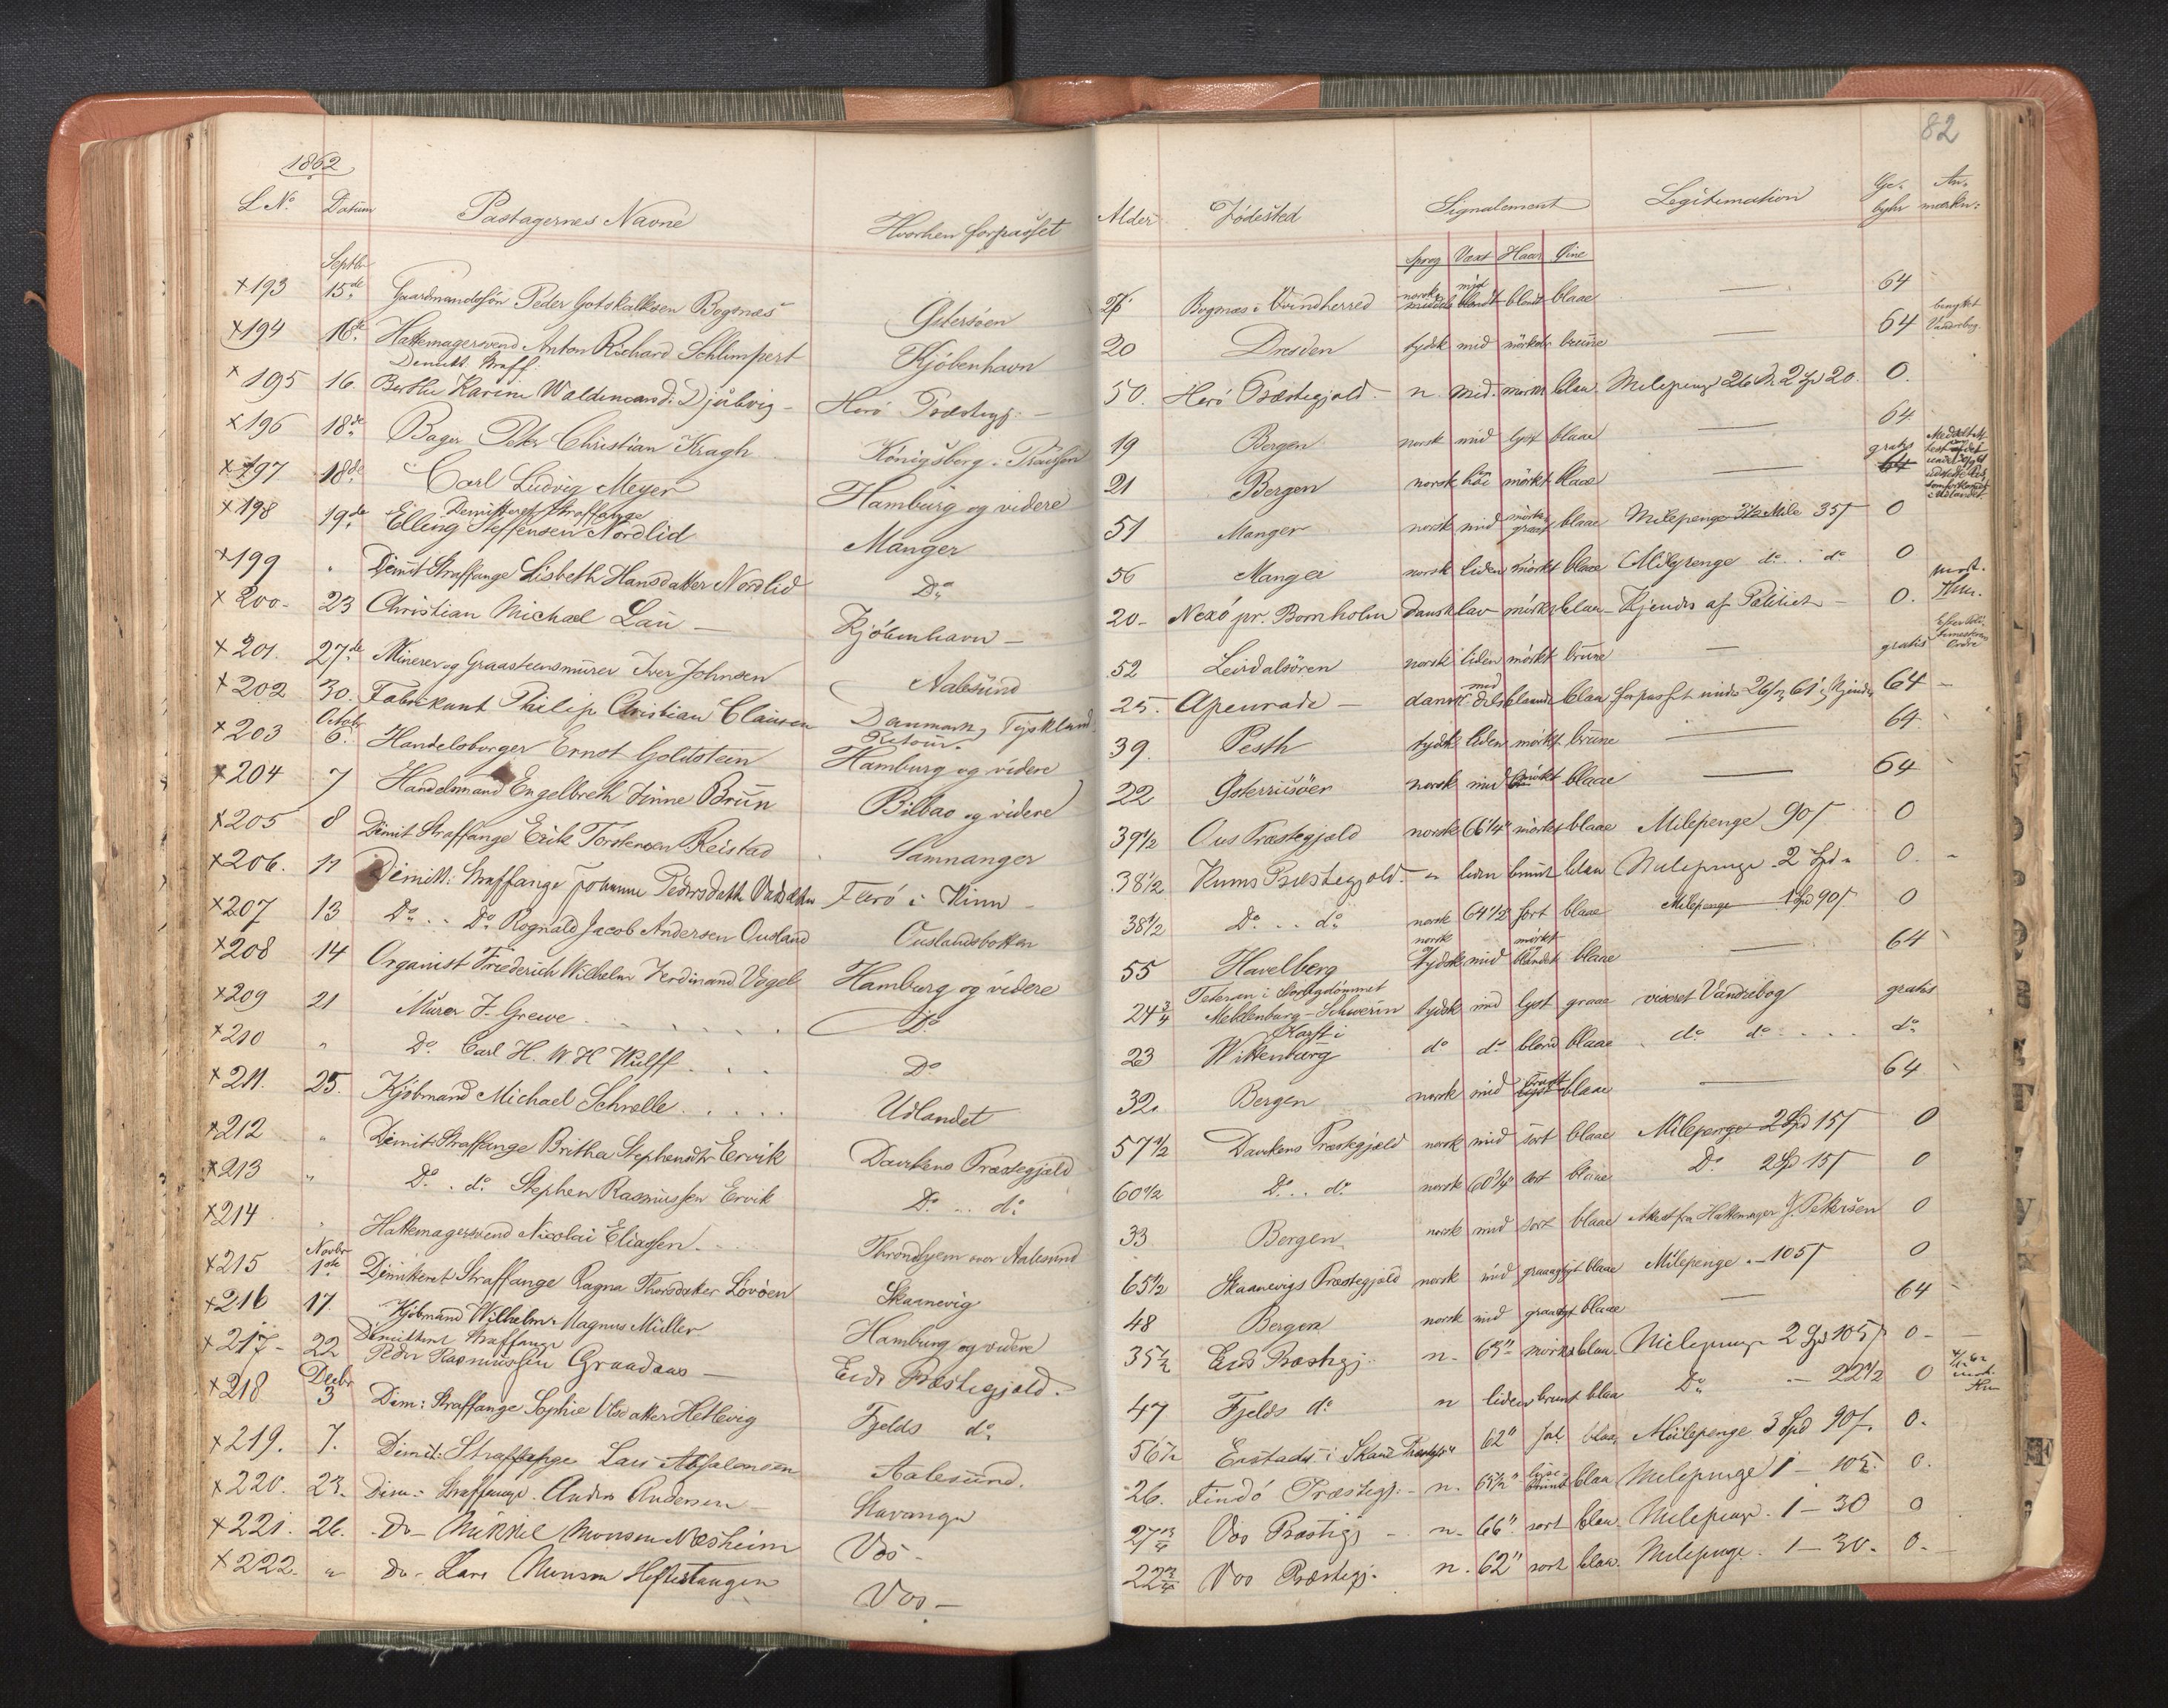 82
1862
L. No. Datum Passagernes Navne Hvorhen forpasset Alder Fødested Signalement Legitimation Ge-byhr An-mærkn:
Sprog Vext Haar Øine
Septbr
×193 15de Gaardmandssøn Peder Gotskalksen Bogsnæs Østersøen Bogsnæs i Qvindherred norsk mid blondt blaae — 64
×194 16de Hattemagersvend Anton Richard Schlimpert Kjøbenhavn 20 Dresden tydsk mid mörkebr brune — 64 benyttet Vandrebog
Demitt. Straff.
×195 16. Berthe Karine Waldemarsd. Djubvig – Herö Præstegj: – 50. Herö Præstegjæld – n. mid. mörk blaa Milepenge 26 M. 2 Sp 20. 0.
×196 18de Bager Peter Christian Kragh Königsberg i Preussen 19 Bergen norsk mid lyst blaae — 64
×197 18de Carl Ludvig Meyer Hamburg og videre 21 Bergen norsk höi mörkt blaae — gratis 64
Demitteret Straffange
×198 19de Elling Steffensen Nordlid Manger 51 Manger norsk mid mörkegraat blaae Milepenge 3½ Mile 35ſ 0
×199 " Demit Straffange Lisbeth Hansdatter Nordlid Do 56 Manger norsk liden mörkt blaae Milepenge do .. do 0
×200– 23 Christian Michael Lau – Kjöbenhavn – 20– Nexö pr. Bornholm dansk lav mörk blaa – Kjendes af Politiet – 0.
×201. 27de Minerer og Graasteensmurer Iver Johnsen Aalesund 52 Leirdalsören norsk liden mörkt brune — gratis
×202 30. Fabrikant Philip Christian Clausen Danmark, Tyskland Retour. 25. Apenrade – dansk mid blaa forpasset 64 –
Octobr
×203 6. Handelsborger Ernst Goldstein Hamburg og videre 39. Pesth tydsk liden mörkt brune — 64
×204 7 Handelsmand Engelbreth Finne Brun Bilbao og videre 22 Østerrisöer norsk mid mörkt blaae — 64
×205 8 Dimit Straffange Erik Torstensen Reistad Samnanger 39½ Ous Præstegjæld norsk 66¼" mörkt blaae Milepenge 90ſ 0
×206. 11 Dimitt: Straffange Johanne Pedersdatter Færö i Kinn – 38½ Kinns Præstegjæld – n liden brunt blaa Milepenge 2 Spd " 0. –
×207 13 Do .. Do Rognald Jacob Andersen Ousland Ouslandsbotten 38½ Do .. do norsk 64½ sort blaae Milepenge 1 Spd 90ſ 0
×208 14 Organist Friederich Wilhelm Ferdinand Vogel Hamburg og videre 55 Havelberg norsk og tydsk mid mörkt og blandet blaae — 64
×209 21 Murer F. Grewe . . . . . Do 24¾ Teteran i Storhertugdömmet Meklenburg-Schwerin tydsk mid lyst graae viseret Vandrebog gratis
×210 " Do Carl H. W. H Wulff . . . Do 23 Karft i Wittenburg do do blond blaae do do . . . . do
×211. 25. Kjöbmand Michael Schrelle . . . . . Udlandet 32. Bergen norsk mid blaae — 64
×212 " Dimit: Straffange Brithe Stephensdtr Ervik Davikens Præstegjæld 57½ Davikens Præstegjæld norsk mid sort blaae Milepenge 2 Spd 15ſ 0
×213 " Do . do Stephen Rasmussen Ervik Do .. do 60½ Do .. do norsk 60¾" sort blaae Do 2 Sp 15ſ 0
×214 " Hattemagersvend Nicolai Eliassen. . . Throndhjem over Aalesund 33 Bergen norsk mid sort blaae Attest fra Hattemager J. Petersen 0
Novbr
×215 1ste Dimitteret Straffange Ragna Thorsdatter Lövöen Skaanevig 65½ Skaanevigs Præstegjæld norsk mid blaae Milepenge " – 105ſ 0
×216 17. Kjöbmand Wilhelm Magnus Müller Hamburg og videre 48 Bergen norsk mid blaae — 64
Dimitteret Straffange
×217 – 22 Peder Rasmussen Graadaas — Eids Præstegjæld. 35½ Eids Præstegj. n. 63" mörkt blaa Milepenge 2 Spd 105ſ 0 – —
Decbr
×218 3 Dim: Straffange Sophie Olsdatter Hetlevig Fjelds do 47 Fjelds do n liden brunt blaa Do – 22½ 0
×219. 7. Dimit: Straffange Lars Absalonsen Aalesund. 56½ 62" blaa Milepenge 3 Spd 90ſ. 0.
×220. 23. Dim: Straffange Anders Andersen – Stavanger 26. Findö Præstegj. – n. 65½" lysebrunt blaa Milepenge 1 – 105. 0.
×221. 26. Do – Mikkel Monsen Næsheim Vos – 27¾ Vos Præstegj – n. 66" sort blaa Milepenge. 1 – 30 0
×222. " Do – Lars Monsen Heftestangen Vos – 22¾ Vos Præstegj. n. 62" sort blaa. Milepenge. 1 – 30. 0. –